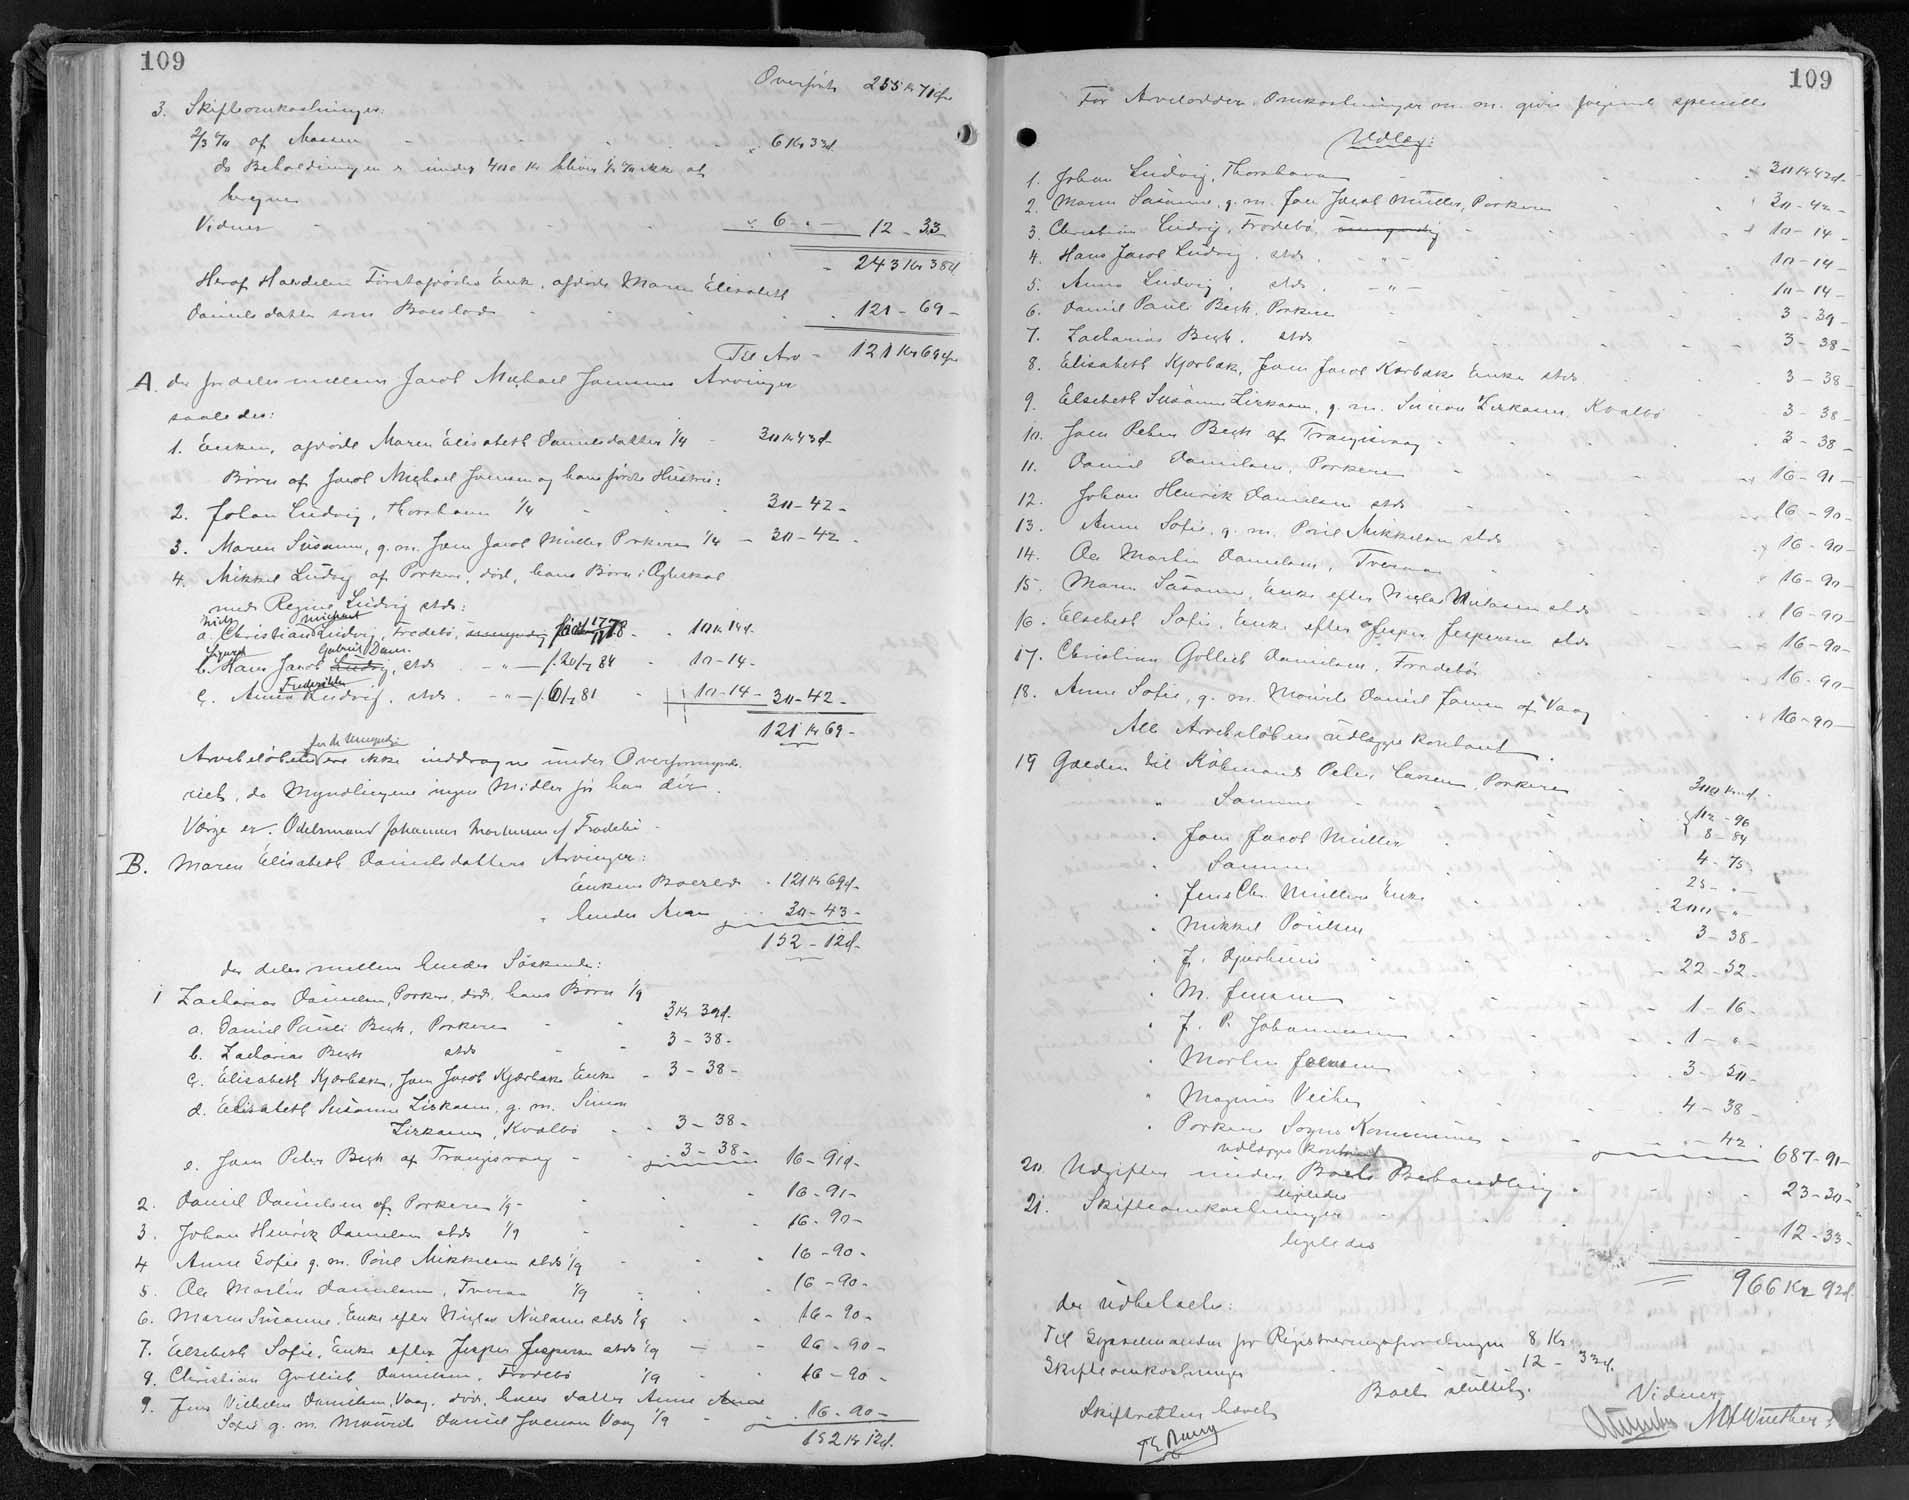 109
Overført 255 Kr 71 Øre
3. Skifteomkostninger:
2/3 % af Massen - 6 Kr 33 Ø.
da Beholdningen er under 400 Kr bliver ½ % ikke at
beregne
Vidner - 6 - " - 12 - 33
243 Kr 38 Ø
Heraf Halvdelen Førstafdødes Enke, afdøde Maren Elisabeth
Danielsdatter som Boeslod - 121 - 69 -
Til Arv - 121 Kr 69 Øre
A. der fordeles mellem Jacob Michael Joensens Arvinger
saaledes:
1. Enken, afdøde Maren Elisabeth Danielsdatter 1/4 - 30 Kr 43 Ø.
Børn af Jacob Michael Joensen og hans første Hustru:
2. Johan Ludvig, Thorshavn 1/4 - 30 - 42 -
3. Maren Susanne, g. m. Joen Jacob Müller Porkere 1/4 - 30 - 42 -
4. Mikkel Ludvig af Porkere, død, hans Børn i Ægteskab
med Regine Ludvig stds:
Michael
a. Christian Ludvig, Frodebø, umyndig - 10 Kr 14 Ø.
Gabriel Dan.
b. Hans Jacob Ludvig, stds - " - f. 20/7 84 - 10 - 14 -
Frederikke
c. Anna Ludvig, stds - " - f. 6/7 81 - 10 - 14 - 30 - 42 -
121 Kr 69 -
for de Umyndige
Arvebeløbene ere ikke inddragne under Overformynde-
riet, da Myndlingene ingen Midler før have dér.
Værge er: Odelsmand Johannes Mortensen af Frodebø -
B. Maren Elisabeth Danielsdatters Arvinger:
Enkens Boeslod - 121 Kr 69 Ø -
" hendes Arv - 30 - 43 -
152 - 12 Ø -
der deles mellem hendes Søskende:
1 Zacharias Danielsen, Porkere, død, hans Børn 1/9
a. Daniel Pauli Bech, Porkere - 3 Kr 39 Ø.
b. Zacharias Bech stds - 3 - 38 -
c. Elisabeth Kjærbæk, Joen Jacob Kjærbæks Enke - 3 - 38 -
d. Elisabeth Susanne Zirkasen, g. m. Simon
Zirkasen, Kvalbø - 3 - 38 -
e. Joen Peter Bech af Trangisvaag - 3 - 38 - 16 - 91 Ø -
2. Daniel Danielsen af Porkere 1/9 - 16 - 91 -
3. Johan Henrik Danielsen stds 1/9 - 16 - 90 -
4 Anne Sofie g. m. Poul Mikkelsen stds 1/9 - 16 - 90 -
5. Ole Martin Danielsen, Tveraa 1/9 - 16 - 90 -
6. Maren Susanne, Enke efter Niclas Nielsen stds 1/9 - 16 - 90 -
7. Elsebeth Sofie, Enke efter Jesper Jespersen stds 1/9 - 16 - 90 -
8. Christian Gotlieb Danielsen, Frodebø 1/9 - 16 - 90 -
9. Jens Vilhelm Danielsen, Vaag, død, hans Datter Anne
Sofie g. m. Mourits Daniel Joensen Vaag 1/9 - 16 - 90 -
152 Kr 12 Ø.
109
For Arvelodder, Omkostninger m. m. gives følgende specielle
Udlæg:
1. Johan Ludvig, Thorshavn - 30 Kr 42 Ø -
2. Maren Susanne, g. m. Joen Jacob Müller, Porkere - 30 - 42 -
3. Christian Ludvig, Frodebø, umyndig - 10 - 14 -
4. Hans Jacob Ludvig, stds - " - 10 - 14 -
5. Anna Ludvig, stds - " - 10 - 14 -
6. Daniel Pauli Bech, Porkere - 3 - 39 -
7. Zacharias Bech, stds - 3 - 38 -
8. Elisabeth Kjærbæk, Joen Jacob Kærbæks Enke stds - 3 - 38 -
9. Elsebeth Susanne Zirkasen, g. m. Simon Zirkasen, Kvalbø - 3 - 38 -
10. Joen Peter Bech af Trangisvaag - 3 - 38 -
11. Daniel Danielsen, Porkere - 16 - 91 -
12. Johan Henrik Danielsen stds - 16 - 90 -
13. Anne Sofie, g. m. Poul Mikkelsen stds - 16 - 90 -
14. Ole Martin Danielsen, Tveraa - 16 - 90 -
15. Maren Susanne, Enke efter Niclas Nielsen stds - 16 - 90 -
16. Elsebeth Sofie, Enke efter Jesper Jespersen stds - 16 - 90 -
17. Christian Gotlieb Danielsen, Frodebø - 16 - 90 -
18. Anne Sofie, g. m. Mourits Daniel Joensen af Vaag - 16 - 90 -
Alle Arvebeløbene udlægges kontant.
19 Gælden til Købmand Peter Larsen, Porkere - 300 Kr " Ø.
" Samme - 112 - 96
" Joen Jacob Müller - 8 - 84
" Samme - 4 - 75
" Jens Chr. Müllers Enke - 25 - " -
" Mikkel Poulsen - 200 - " -
" J. Djurhuus - 3 - 38 -
" M. Jensen - 22 - 52 -
" J. P. Johannesen - 1 - 16 -
" Morten Joensen - 1 - " -
" Magnus Veihe - 3 - 50 -
" Porkere Sogns Kommune - 4 - 38 -
- " - 42 - 687 - 91 -
udlægges kontant
20 Udgifter under Boets Behandling - 23 - 30 -
ligeledes
21. Skifteomkostninger - 12 - 33 -
ligeledes
966 Kr 92 Ø.
der udbetales:
Til Sysselmanden for Registreringsforretningen 8 Kr
Skifteomkostninger - 12 - 33 Ø.
Boets sluttet.
Skifteretten hævet
Vidner